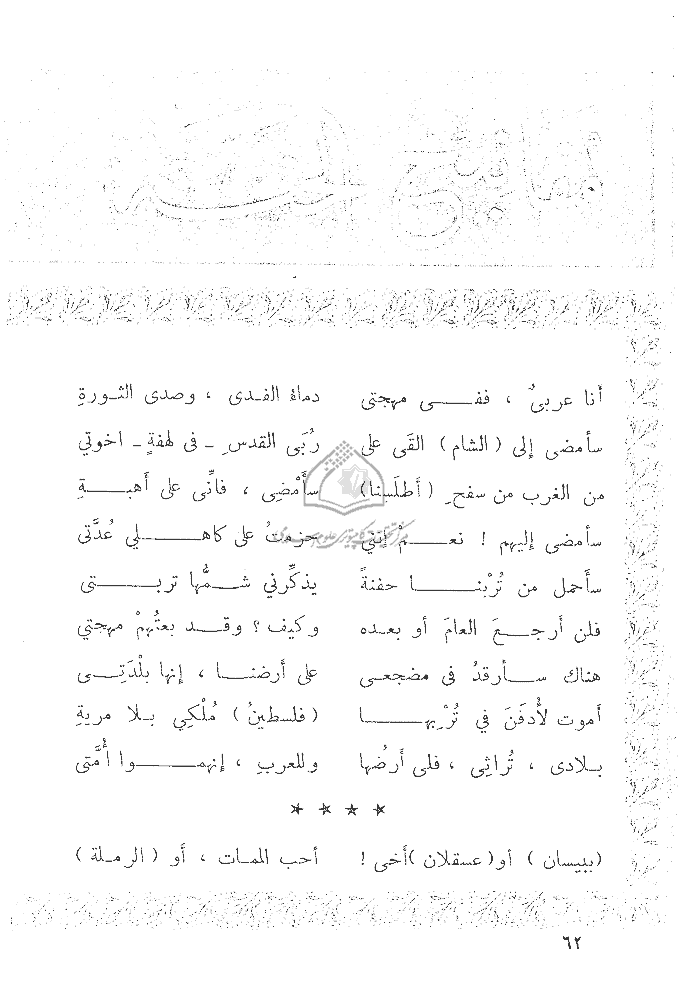 أنا عربىٌ ، ففـــى مهجتى دماءُ الفـدى ، وصدى الثـورةِ
سأمضى إلى ( الشام ) القَى على رُبَى القدسِ ـ فى لهفةٍ ـ اخوتي
من الغرب من سفحِ ( أطلَسِنا ) سأَمْضِى ، فانِّى على أهبـــةِ
سأمضى إليهم ! نعـــمْ إننى حزمتُ على كاهـــلي عُدَّتى
سأحمل من تُرْبنـــا حفنةً يذكِّرني شـمُّها تربـــتى
فلن أرجـعَ العامَ أو بعده وكيف ؟ وقـد بعتُهمْ مهجتي
هناك سـأرقدُ فى مضجعى على أرضنـا ، إنها بلْدَتِـى
أموت لأُدفَنَ في تُرْبهـــا ( فلسطينُ ) مُلْكِي بـلا مريةِ
بـلادى ، تُراثِى ، فلى أرضُها وللعربِ ، إنهمـــوا أُمَّتى
★ ★ ★ ★
( ببيسان ) أو( عسقلان )أخى ! أحب الممـات ، أو ( الرمـلة )
٦٢